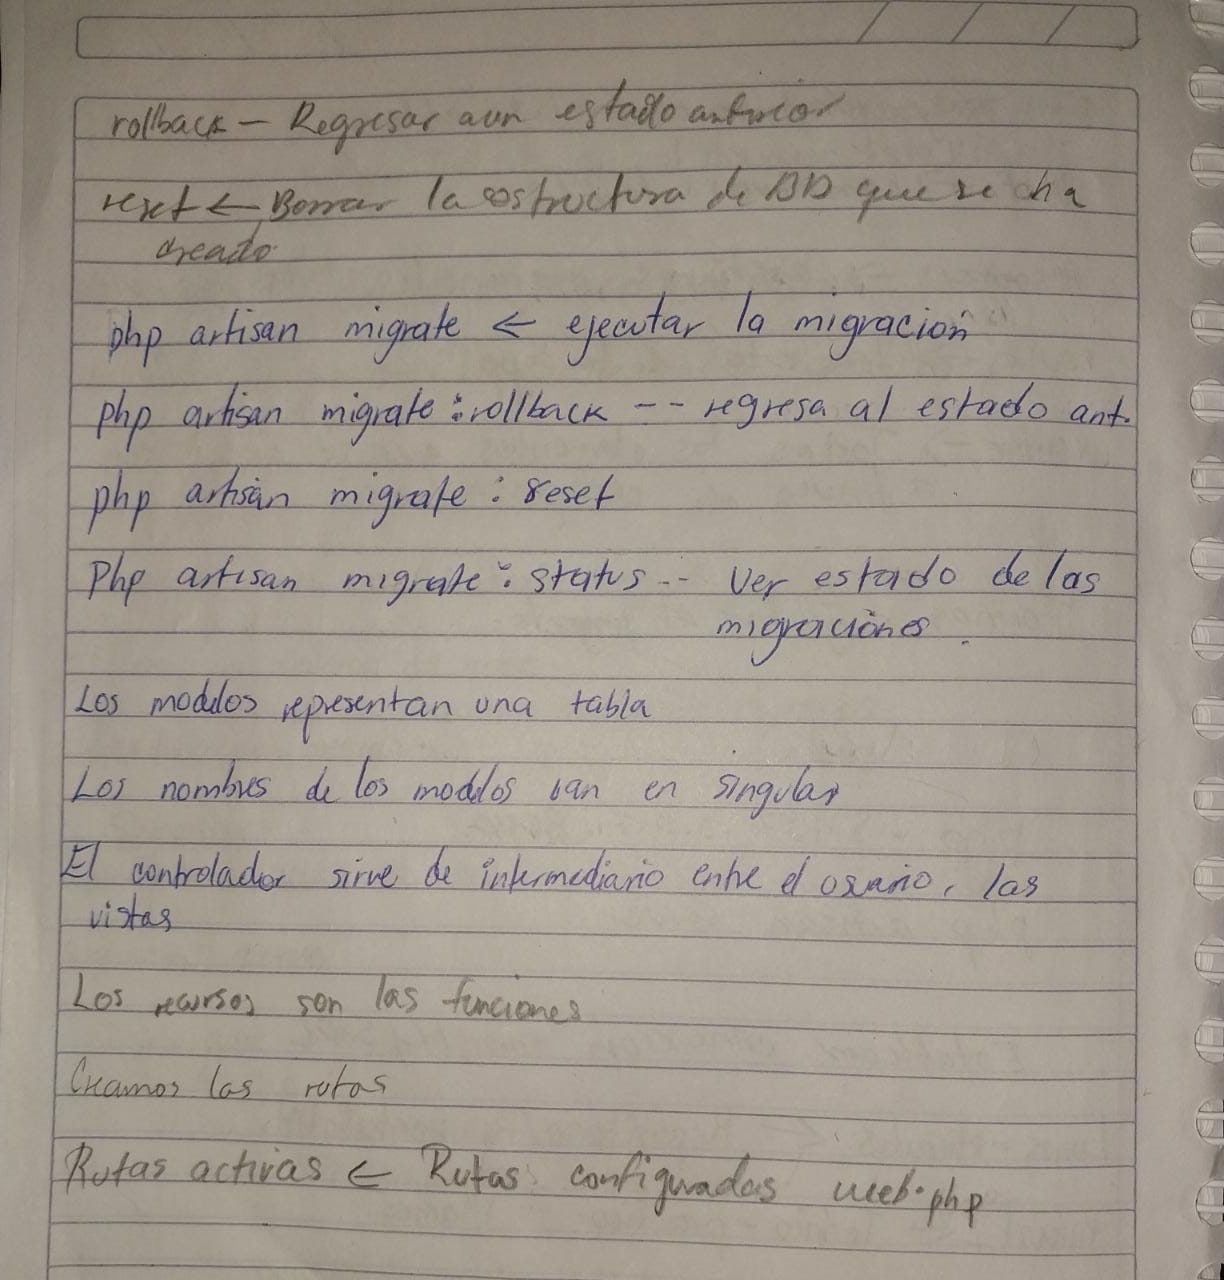 rollback – Regresar aun estado anterior
reset ← Borrar la estructura de BD que se ha
creado
php artisan migrate ← ejecutar la migración
php artisan migrate : rollback -- regresa al estado ant.
php artisan migrate : reset
Php artisan migrate : status -- Ver estado de las
migraciones.
Los modelos representan una tabla
Los nombres de los modelos van en singular
El controlador sirve de intermediario entre el usuario, las
vistas
Los recursos son las funciones
Creamos las rutas
Rutas activas ← Rutas configuradas web.php